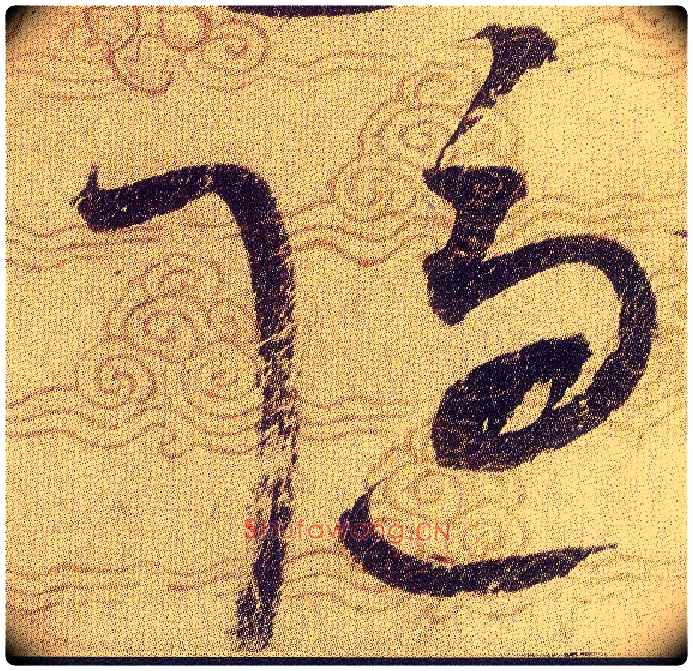 隐
Shufawang.CN